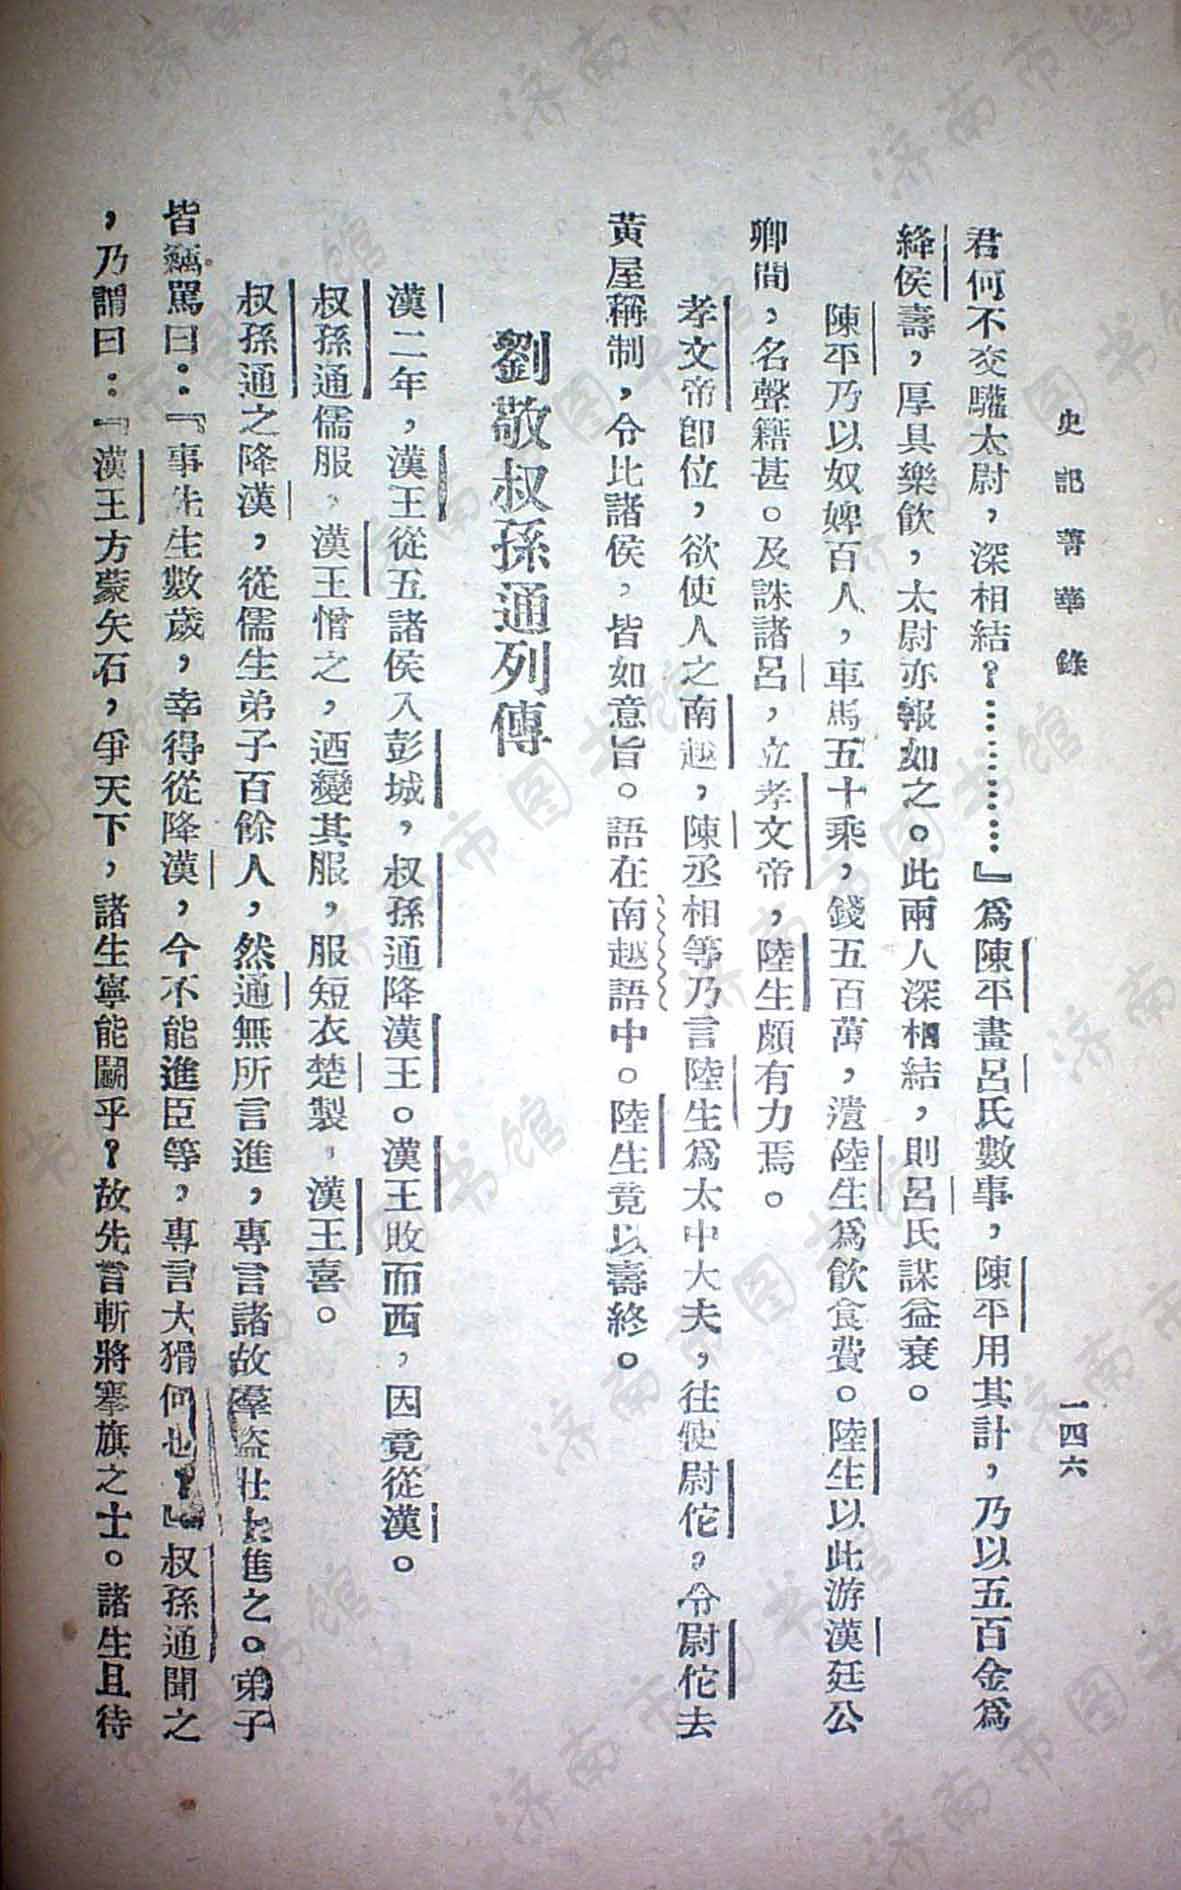 史記菁華錄
一四六
君何不交驩太尉，深相結？…………』爲陳平畫呂氏數事，陳平用其計，乃以五百金爲
絳侯壽，厚具樂飲，太尉亦報如之。此兩人深相結，則呂氏謀益衰。
陳平乃以奴婢百人，車馬五十乘，錢五百萬，遺陸生爲飲食費。陸生以此游漢廷公
卿間，名聲籍甚。及誅諸呂，立孝文帝，陸生頗有力焉。
孝文帝卽位，欲使人之南越，陳丞相等乃言陸生爲太中大夫，往使尉佗，令尉佗去
黃屋稱制，令比諸侯，皆如意旨。語在南越語中。陸生竟以壽終。
劉敬叔孫通列傳
漢二年，漢王從五諸侯入彭城，叔孫通降漢王。漢王敗而西，因竟從漢。
叔孫通儒服，漢王憎之，迺變其服，服短衣楚製，漢王喜。
叔孫通之降漢，從儒生弟子百餘人，然通無所言進，專言諸故羣盜壯士進之。弟子
皆竊駡曰：『事先生數歲，幸得從降漢，今不能進臣等，專言大猾何也？』叔孫通聞之
，乃謂曰：『漢王方蒙矢石，爭天下，諸生寧能鬭乎？故先言斬將搴旗之士。諸生且待
济南市图书馆